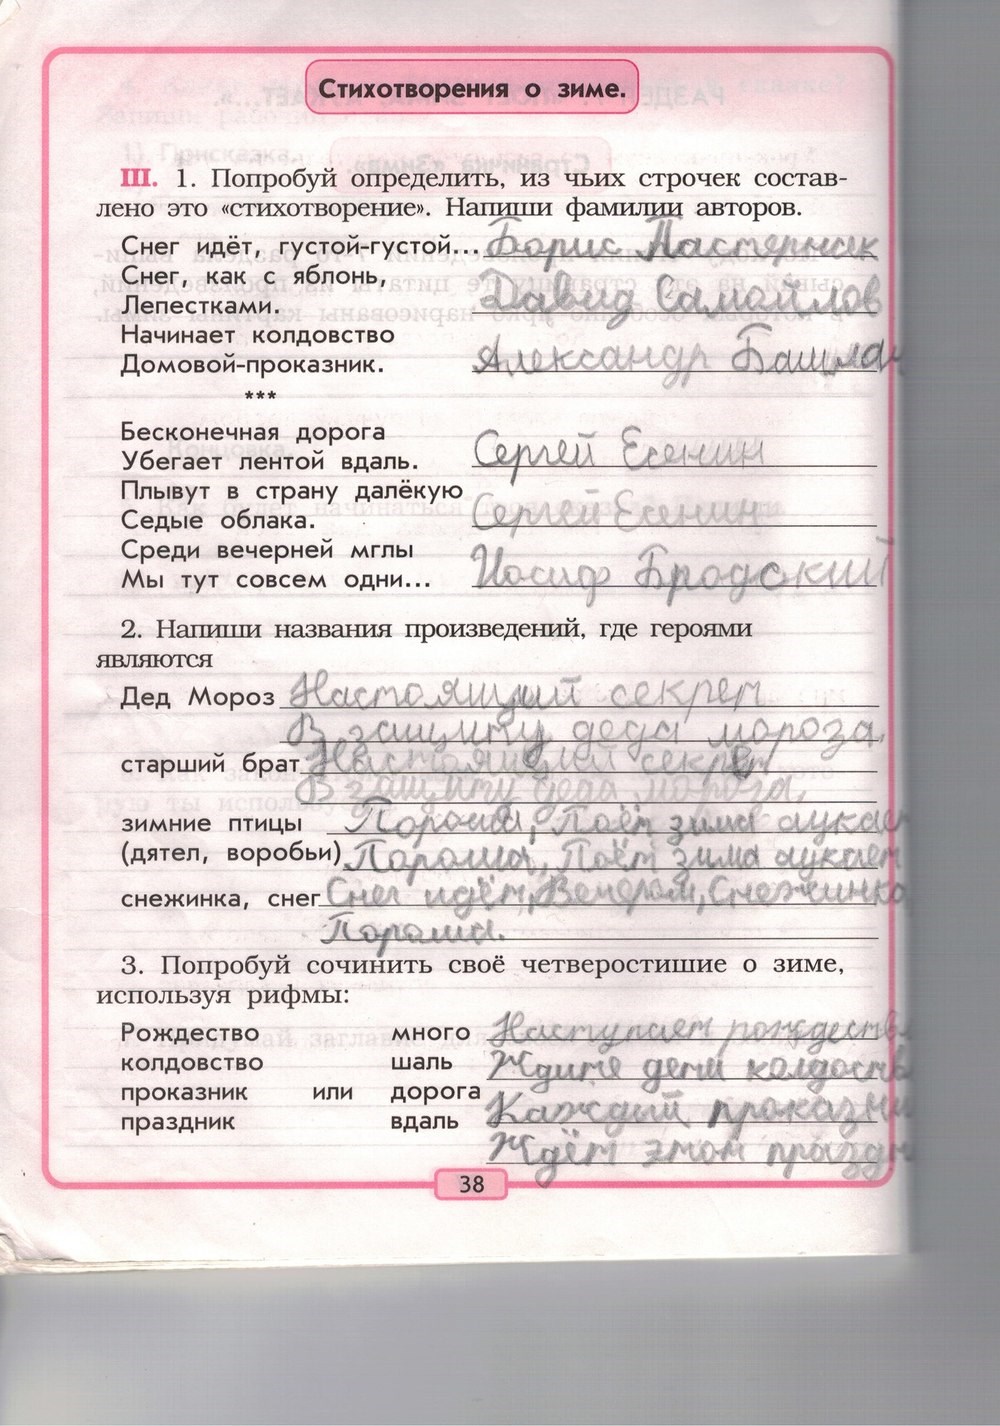 Стихотворения о зиме.
III. 1. Попробуй определить, из чьих строчек состав-
лено это «стихотворение». Напиши фамилии авторов.
Снег идёт, густой-густой... Борис Пастернак
Снег, как с яблонь,
Лепестками. Давид Самойлов
Начинает колдовство
Домовой-проказник. Александр Башлач
***
Бесконечная дорога
Убегает лентой вдаль. Сергей Есенин
Плывут в страну далёкую
Седые облака. Сергей Есенин
Среди вечерней мглы
Мы тут совсем одни... Иосиф Бродский
2. Напиши названия произведений, где героями
являются
Дед Мороз Настоящий секрет
В защиту деда мороза,
старший брат Настоящий секрет
В защиту деда мороза,
зимние птицы Пороша, Поёт зима аукает
(дятел, воробьи) Пороша, Поёт зима аукает
снежинка, снег Снег идёт, Вечером, Снежинка
Пороша.
3. Попробуй сочинить своё четверостишие о зиме,
используя рифмы:
Рождество много Наступает рождеств
колдовство шаль Ждите дети колдоств
проказник или дорога Каждий проказни
праздник вдаль Ждёт этот праздн
38